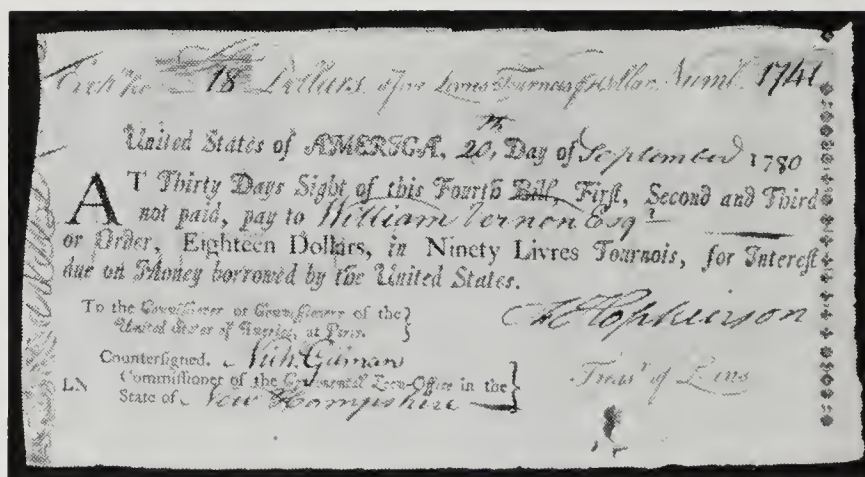 Exch.ᵉ for 18 Dollars, of five Livres Tournois pr Dollar. Numb. 1741
United States of AMERICA, 20th, Day of September 1780
AT Thirty Days Sight of this Fourth Bill, First, Second and Third
not paid, pay to William Vernon Esqr
or Order, Eighteen Dollars, in Ninety Livres Tournois, for Interest
due on Money borrowed by the United States.
To the Commissioner or Commissioners of the
United States of America, at Paris.
F Hopkinson
Countersigned. Nich. Gilman
Treasr of Loans
LN Commissioner of the Continental Loan-Office in the
State of New Hampshire